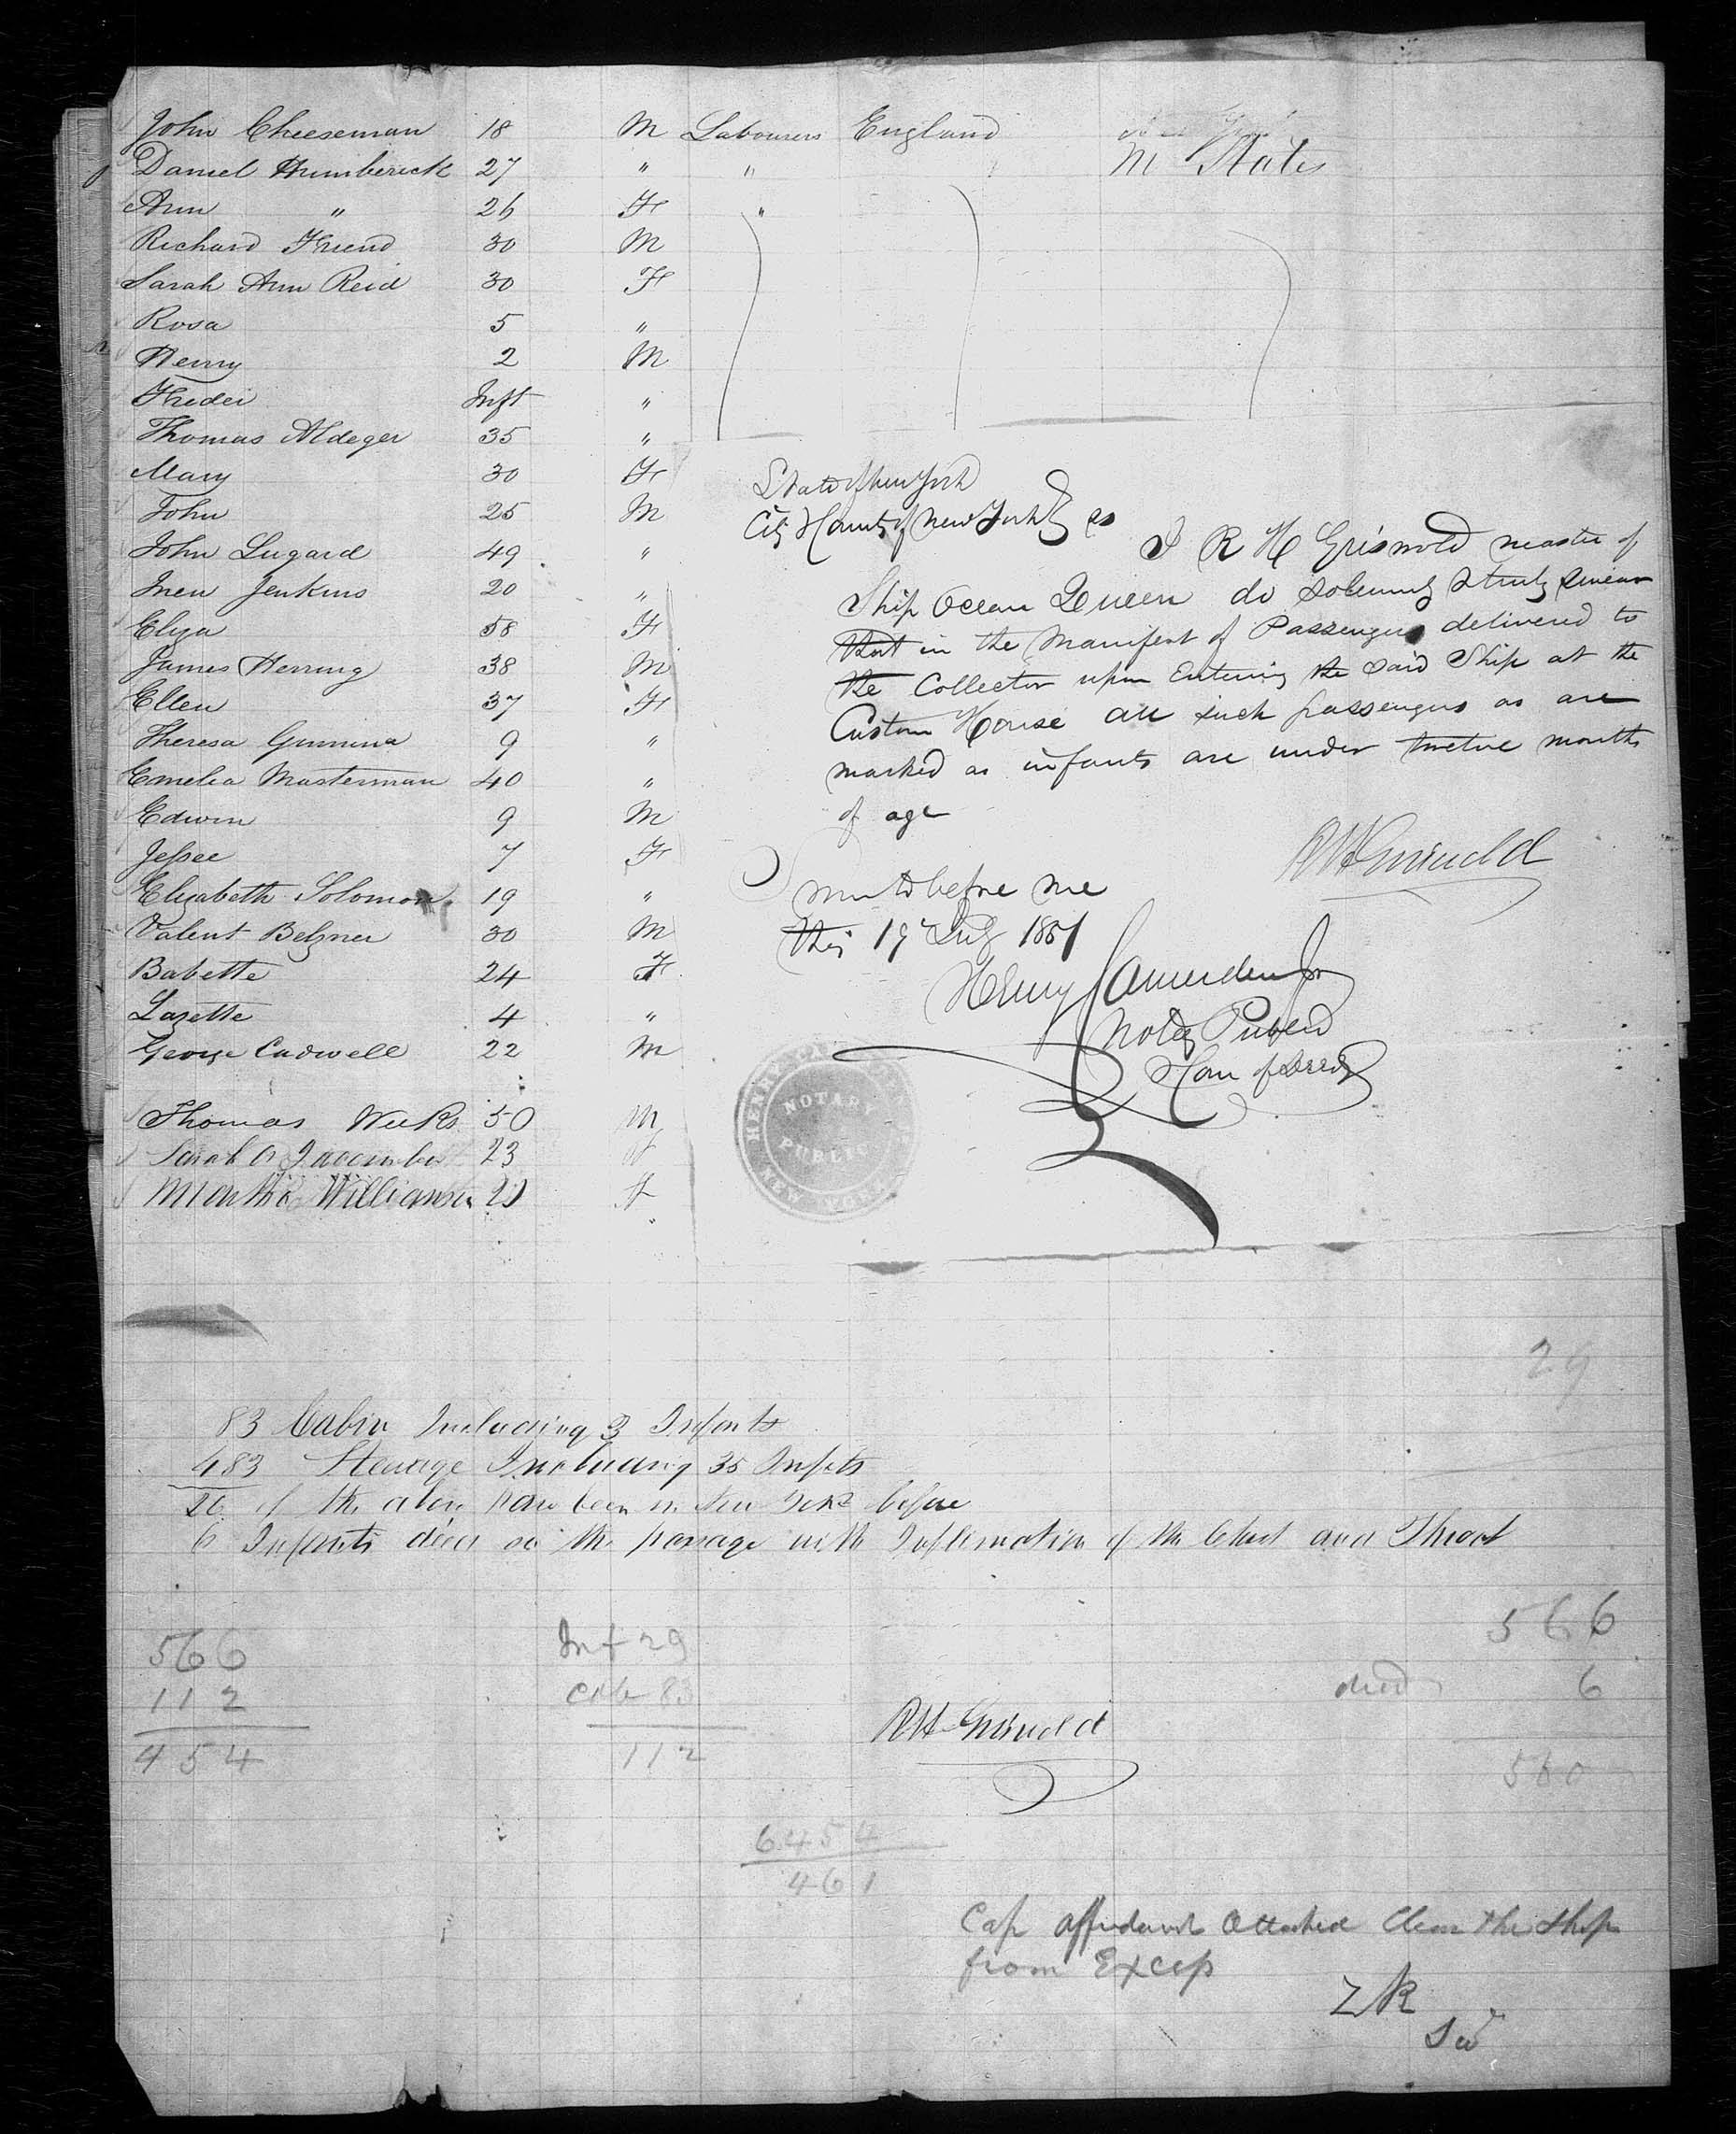 John Cheeseman 18 M Labourers England
Daniel Humberick 27 " " M States
Ann " 26 F "
Richard Friend 30 M
Sarah Ann Reid 30 F
Rosa 5 "
Henry 2 M
Inft "
Thomas Aldeger 35 "
Mary 30 F
John 25 M
John Lugard 49 "
Jenkins 20 "
Eliza 58 F
James Herring 38 M
Ellen 37 F
Theresa 9 "
Emelia Masterman 40 "
Edwin 9 M
Jessee 7 F
Elizabeth Solomon 19 "
Valent Belzner 30 M
Babette 24 F
Lazette 4 "
George Cadwell 22 M
Thomas Weeks 50 M
Sarah 23
Martha 2 F
State of New York
City & County of New York ss
I R H Griswold master of
Ship Ocean Queen do solemnly & truly swear
that in the Manifest of Passengers delivered to
the Collector upon Entering the said Ship at the
Custom House all such passengers as are
marked as infants are under twelve months
of age
RH Griswold
Sworn to before me
this 19 July 1851
Henry Jr
Notary Public
NOTARY
PUBLIC
NEW YORK
29
83 Cabin Including 3 Infants
483 Steerage Including 35 Infts
26 of the above have been in New York before
6 Infants died on the passage with Inflamation of the Chest and Throat
566
112
454
Inf 29
Cab 83
112
RH Griswold
566
died 6
560
6 454
461
Cap affidavit Attached Clear the Ship
from Excess